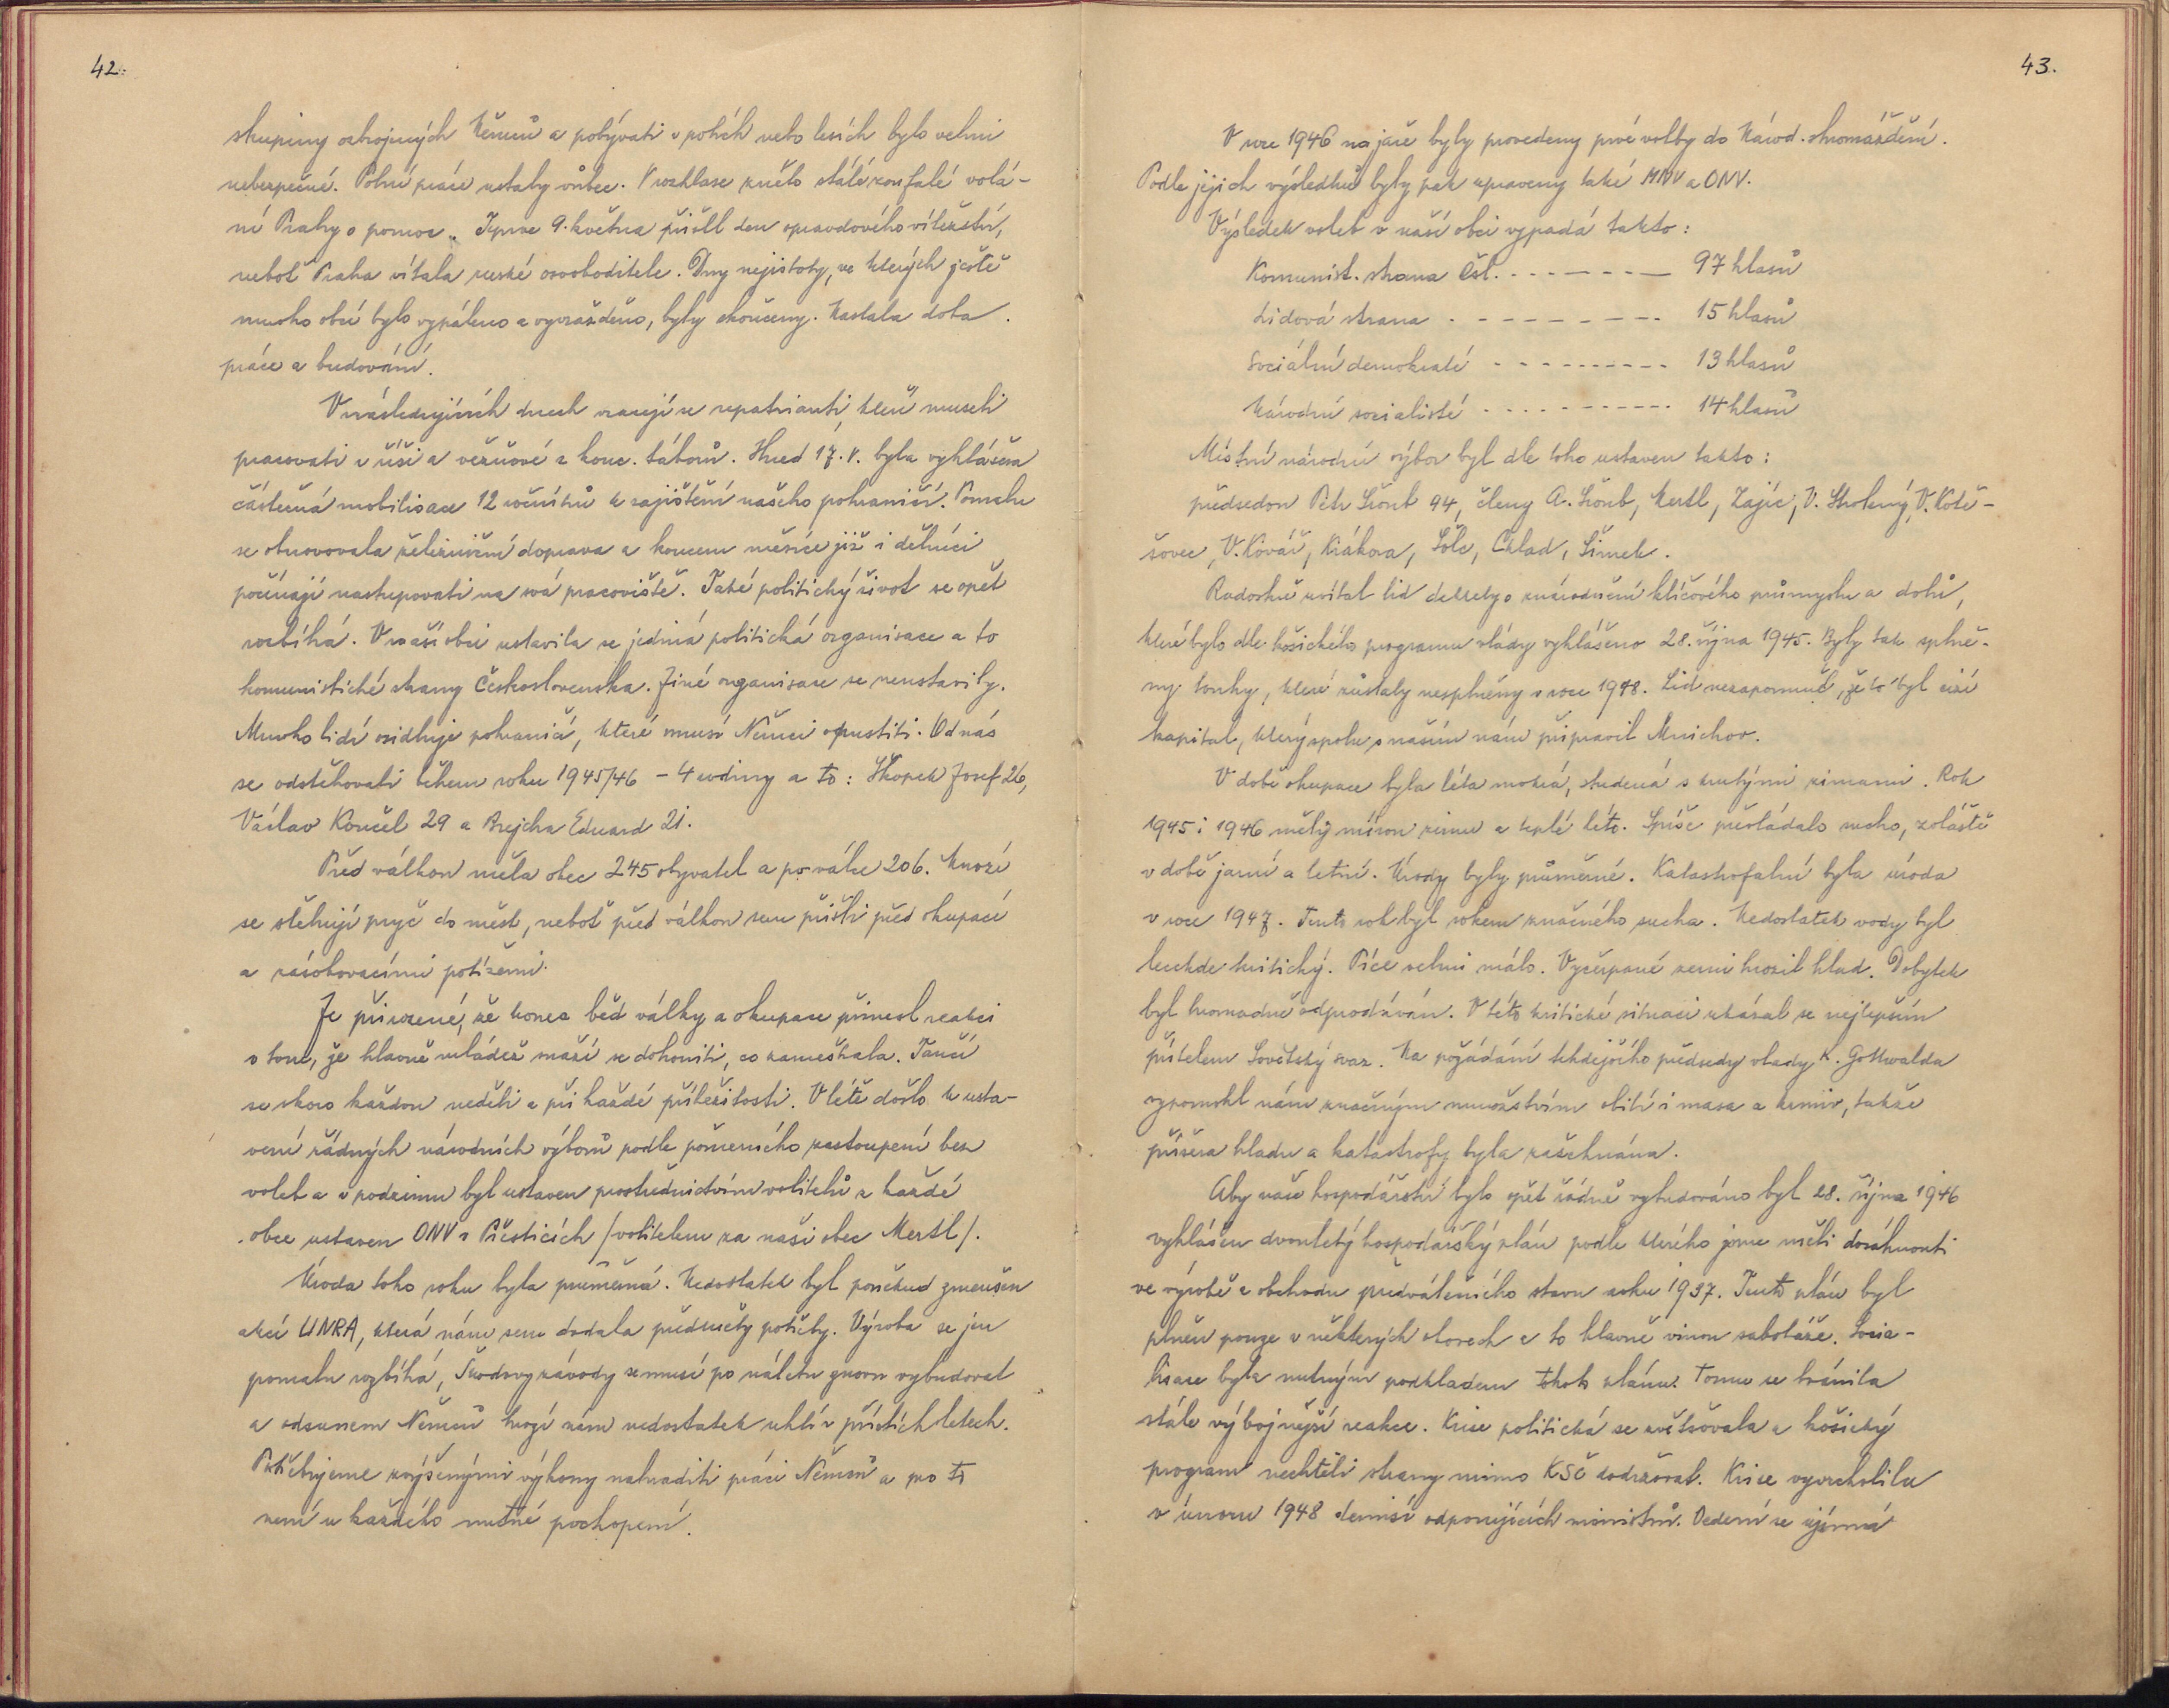 42.
skupiny ozbrojených Němců a pobývati v polích nebo lesích bylo velmi
nebezpečné. Polní práce ustaly vůbec. V rozhlase znělo stálé zoufalé volá-
ní Prahy o pomoc. Teprve 9. května přišel den opravdového vítězství,
neboť Praha vítala ruské osvoboditele. Dny nejistoty, ve kterých ještě
mnoho obcí bylo vypáleno a vyvražděno, byly skončeny. Nastala doba
práce a budování.
V následujících dnech vracejí se repatrianti, kteří museli
pracovati v říši a vězňové z konc. táborů. Hned 17. V. byla vyhlášena
částečná mobilisace 12 ročníků k zajištění našeho pohraničí. Pomalu
se obnovovala železniční doprava a koncem měsíce již i dělníci
počínají nastupovati na svá pracoviště. Také politický život se opět
rozbíhá. V naší obci ustavila se jediná politická organisace a to
komunistické strany Československa. Jiné organisace se neustavily.
Mnoho lidí osidluje pohraničí, které musí Němci opustiti. Od nás
se odstěhovali během roku 1945/46 – 4 rodiny a to: Skopek Josef 26,
Václav Končel 29 a Brejcha Eduard 21.
Před válkou měla obec 245 obyvatel a po válce 206. Mnozí
se stěhují pryč do měst, neboť před válkou sem přišli před okupací
a zásobovacími potížemi.
Je přirozené, že konec běd války a okupace přinesl reakci
v tom, že hlavně mládež snaží se dohoniti, co zameškala. Tančí
se skoro každou neděli a při každé příležitosti. V létě došlo k usta-
vení řádných národních výborů podle poměrného zastoupení bez
voleb a v podzimu byl ustaven prostřednictvím volitelů z každé
obce ustaven ONV v Přešticích /volitelem za naši obec Mertl/.
Úroda toho roku byla průměrná. Nedostatek byl poněkud zmenšen
akcí UNRA, která nám sem dodala předměty potřeby. Výroba se jen
pomalu rozbíhá, Škodovy závody se musí po náletu znovu vybudovat
a odsunem Němců hrozí nám nedostatek uhlí v příštích letech.
Potřebujeme zvýšenými výkony nahraditi práci Němců a pro to
není u každého nutné pochopení.
43.
V roce 1946 na jaře byly provedeny prvé volby do Národ. shromáždění.
Podle jejich výsledků byly pak upraveny také MNV a ONV.
Výsledek voleb v naší obci vypadá takto:
Komunist. strana Čsl. - - - - - - - - 97 hlasů
Lidová strana - - - - - - - - - 15 hlasů
Sociální demokraté - - - - - - - - - 13 hlasů
Národní socialisté - - - - - - - - - - 14 hlasů
Místní národní výbor byl dle toho ustaven takto:
předsedou Petr Šroub 94, členy A. Šroub, Mertl, Zajíc, V. Skolený, V. Kote-
šovec, V. Kovář, Krákora, Šólc, Chlad, Šimek.
Radostně uvítal lid dekrety o znárodnění klíčového průmyslu a dolů,
které bylo dle košického programu vlády vyhlášeno 28. října 1945. Byly tak splně-
ny touhy, které zůstaly nesplněny v roce 1918. Lid nezapomněl, že to byl cizí
kapitál, který spolu s naším nám připravil Mnichov.
V době okupace byla léta mokrá, studená s krutými zimami. Rok
1945 i 1946 měly mírnou zimu a teplé léto. Spíše převládalo sucho, zvláště
v době jarní a letní. Úrody byly průměrné. Katastrofální byla úroda
v roce 1947. Tento rok byl rokem značného sucha. Nedostatek vody byl
leckde kritický. Píce velmi málo. Vyčerpané zemi hrozil hlad. Dobytek
byl hromadně odprodáván. V této kritické situaci ukázal se nejlepším
přítelem Sovětský svaz. Na požádání tehdejšího předsedy vlády K. Gottwalda
vypomohl nám značným množstvím obilí i masa a krmiv, takže
příšera hladu a katastrofy byla zažehnána.
Aby naše hospodářství bylo opět řádně vybudováno byl 28. října 1946
vyhlášen dvouletý hospodářský plán podle kterého jsme měli dosáhnouti
ve výrobě a obchodu předválečného stavu roku 1937. Tento plán byl
plněn pouze v některých oborech a to hlavně vinou sabotáže. Socia-
lisace byla nutným podkladem tohoto plánu. Tomu se bránila
stále výbojnější reakce. Krise politická se zvětšovala a košický
program nechtěli strany mimo KSČ dodržovat. Krise vyvrcholila
v únoru 1948 demisí odporujících ministrů. Dedení se ujímá